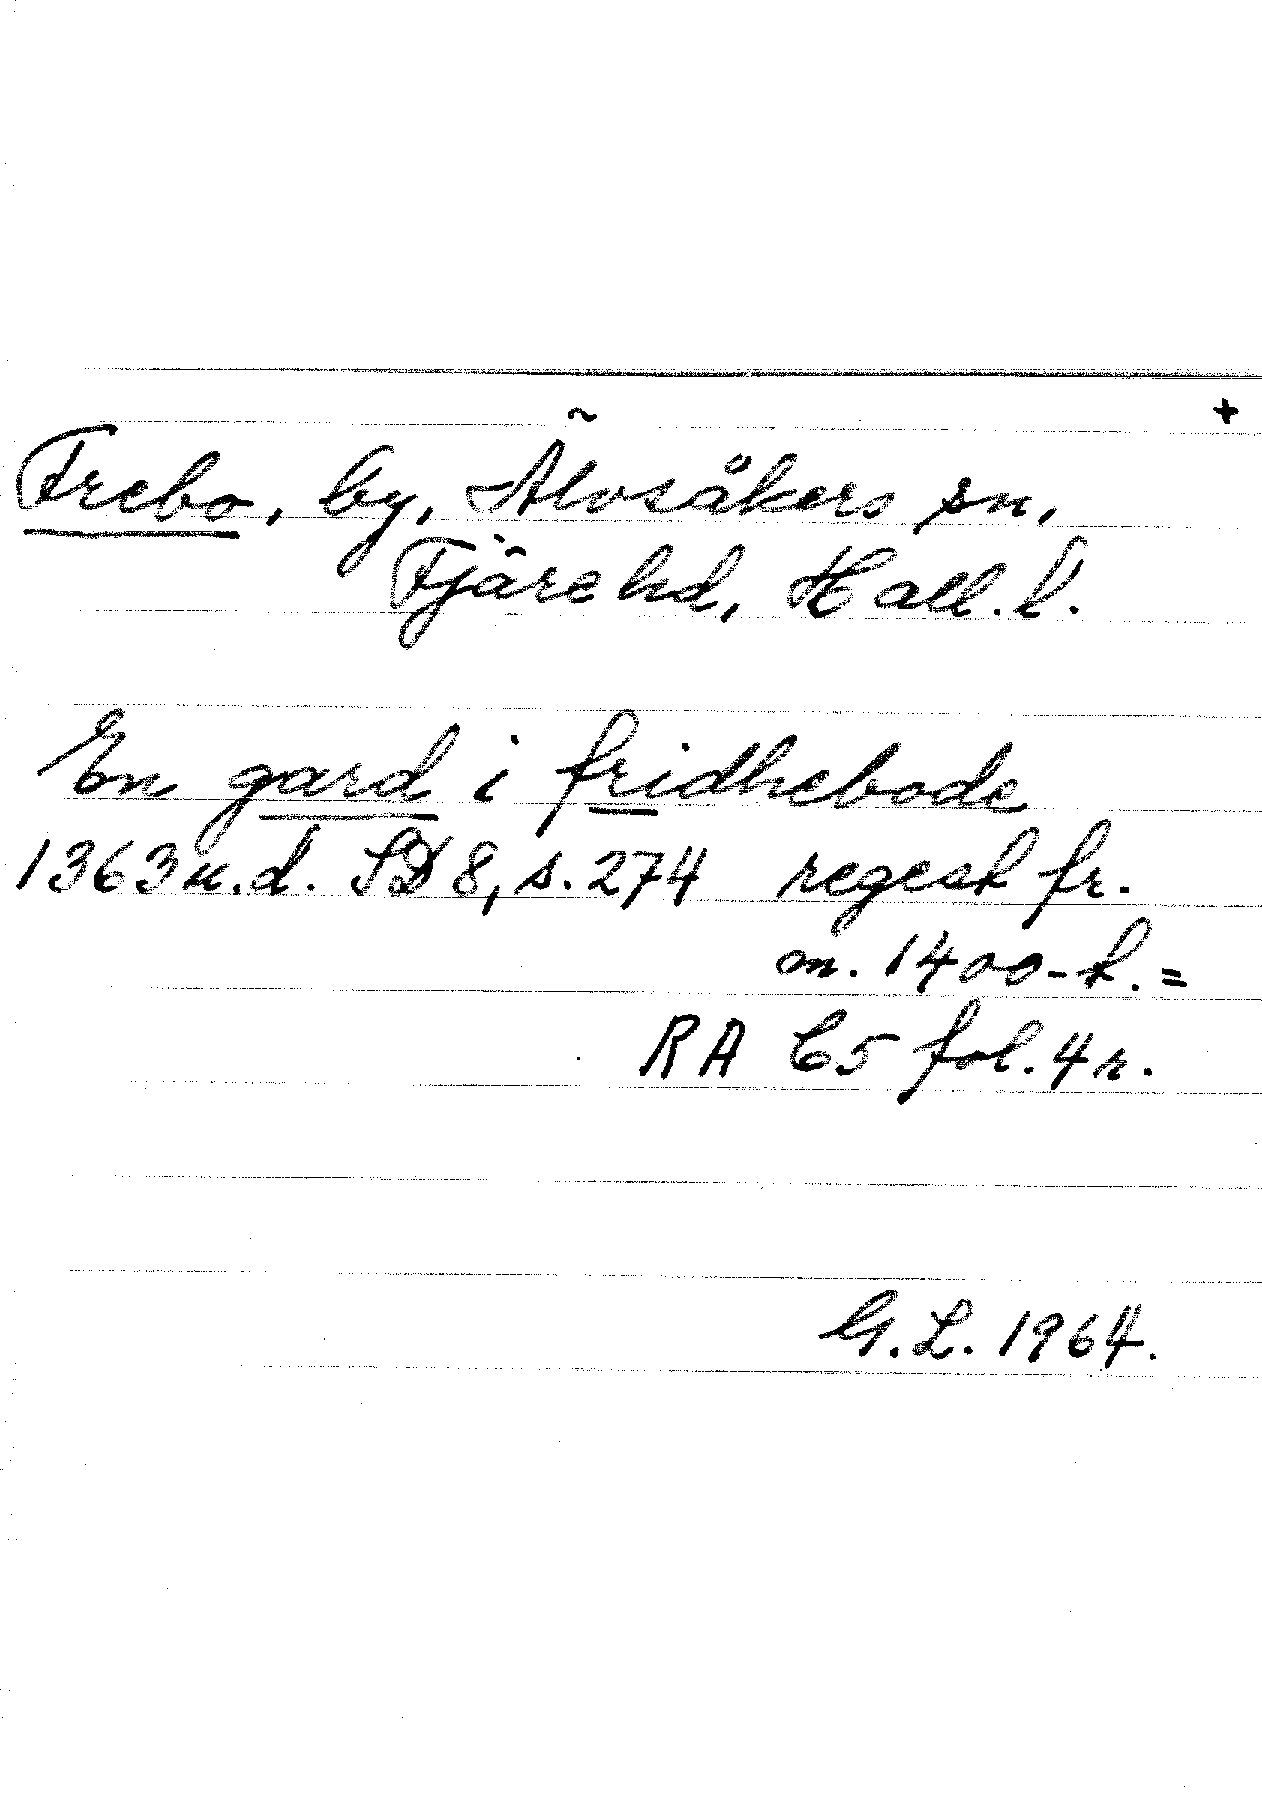 +
Frebo, by, Älvsåkers sn,
Fjäre hd, Hall. l.
En gard i fridhebode
1363 u.d. SD 8, s. 274 regest fr.
m. 1400-t. =
RA C5 fol. 4 r.
G.L. 1964.